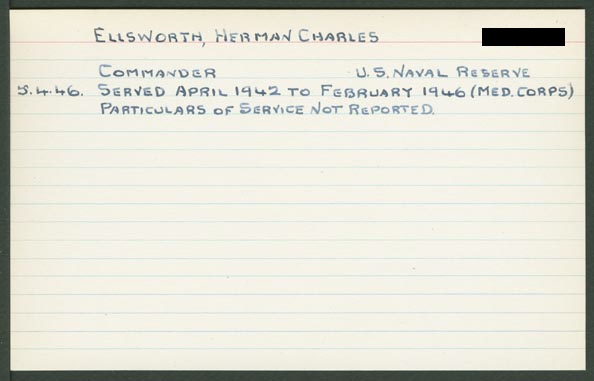 ELLSWORTH, HERMAN CHARLES
COMMANDER U.S. NAVAL RESERVE
5.4.46. SERVED APRIL 1942 TO FEBRUARY 1946 (MED. CORPS)
PARTICULARS OF SERVICE NOT REPORTED.